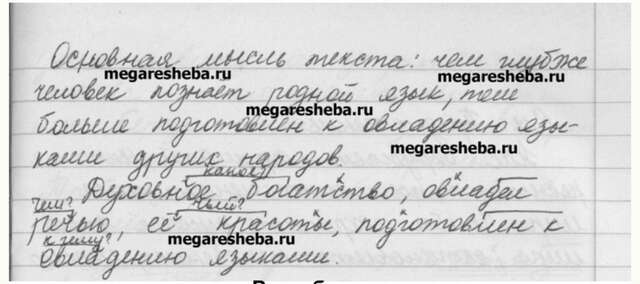 Основная мысль текста: чем глубже
megaresheba.ru
megaresheba.ru
человек познает родной язык, тем
megaresheba.ru
больше подготовлен к овладению язы-
megaresheba.ru
ками других народов.
какое?
Духовное богатство, овладел
чем? чьей?
речью, её красоты, подготовлен к
к чему?
megaresheba.ru
овладению языками.